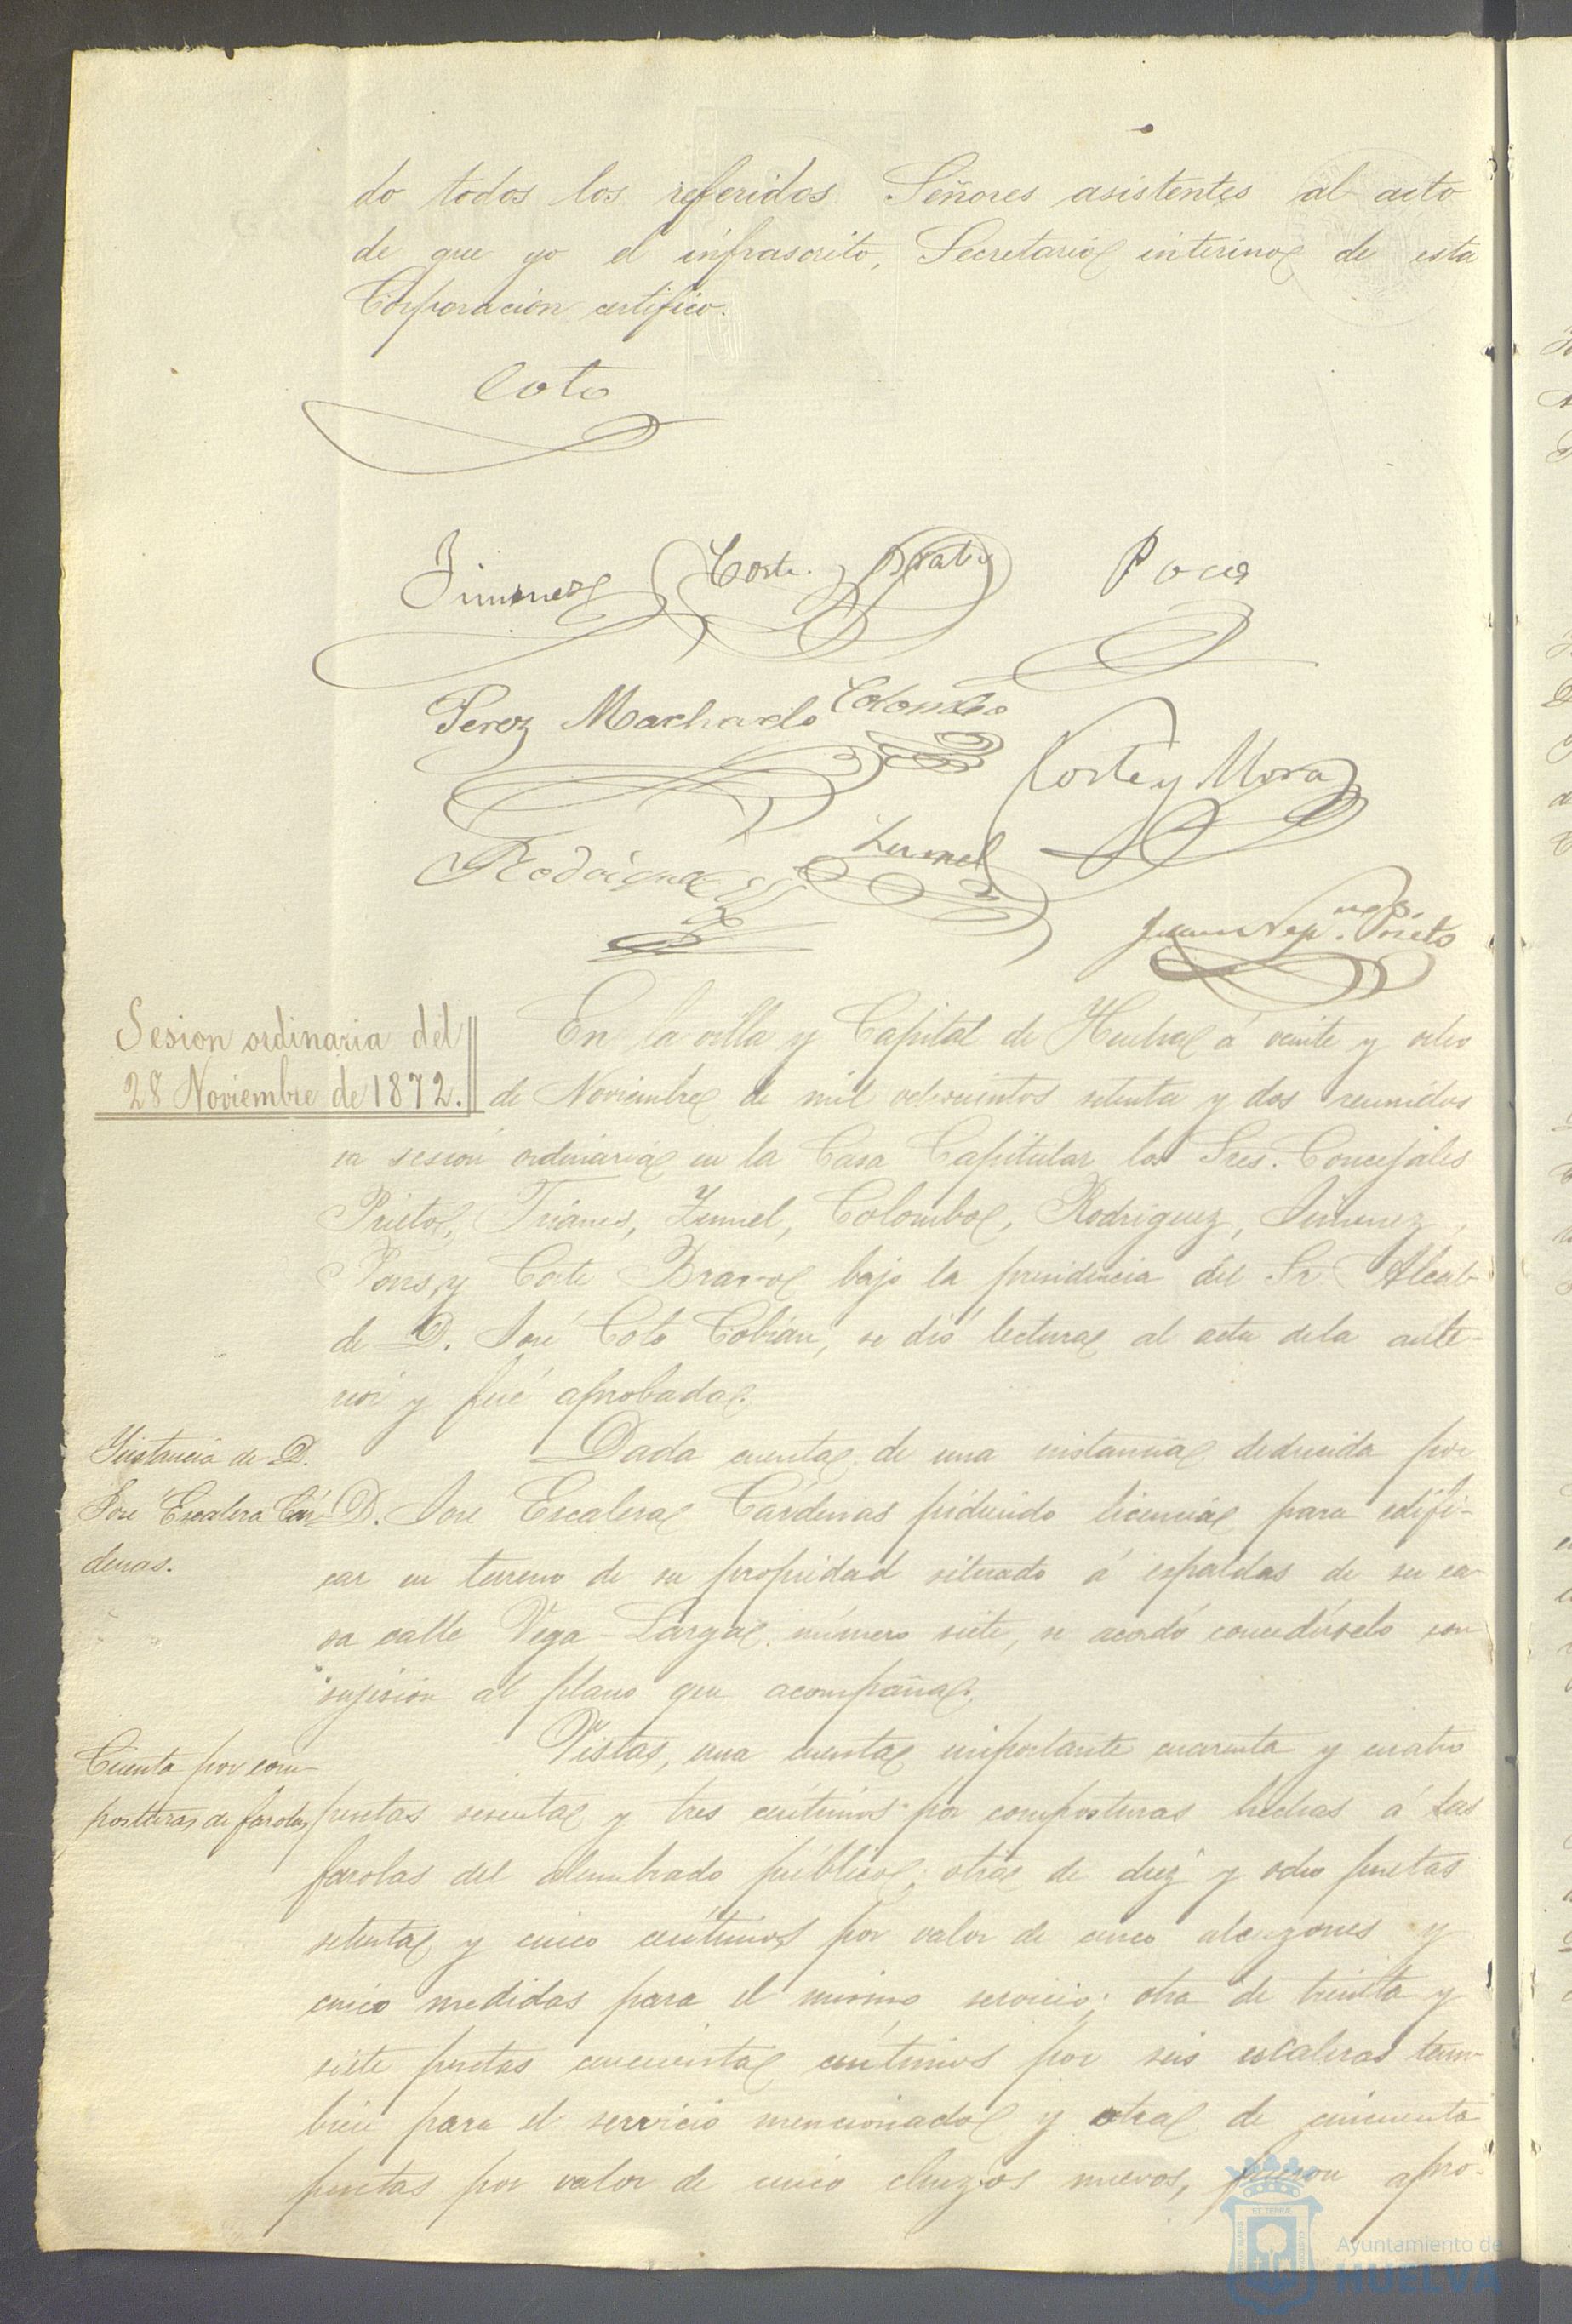 do todos los referidos Señores asistentes al acto
de que yo el infrascrito, Secretario interino de esta
Corporacion certifico.
Coto
Jimenez Corte y Bravo Pons
Perez Machado Colombo
Corte y Mora
Rodriguez Zumel
Juan Nep.no Prieto
Sesion ordinaria del
28 Noviembre de 1872.
En la villa y Capital de Huelva á veinte y ocho
de Noviembre de mil ochocientos setenta y dos reunidos
en sesion ordinaria en la Casa Capitular los Sres. Concejales
Prieto, Trianes, Zumel, Colombo, Rodriguez, Jimenez,
Pons, y Corte Bravo bajo la presidencia del Sr. Alcal-
de D. José Coto Cobian, se dió lectura al acta dela ante-
rior y fué aprobada.
Instancia de D.
José Escalera Cár-
denas.
Dada cuenta de una instancia deducida por
D. José Escalera Cárdenas pidiendo licencia para edifi-
car en terreno de su propiedad situado á espaldas de su ca-
sa calle Vega-Larga número siete, se acordó concedérselo con
sujecion al plano que acompaña.
Cuenta por com-
posturas de farolas
Vistas, una cuenta importante cuarenta y cuatro
pesetas sesenta y tres centimos por composturas hechas á las
farolas del alumbrado público; otra de diez y ocho pesetas
setenta y cinco centimos por valor de cinco alcuzones y
cinco medidas para el mismo servicio; otra de treinta y
siete pesetas cincuenta centimos por seis escaleras tam-
bien para el servicio mencionado y otra de cincuenta
pesetas por valor de cinco chuzos nuevos, fueron apro-
Ayuntamiento de
HUELVA